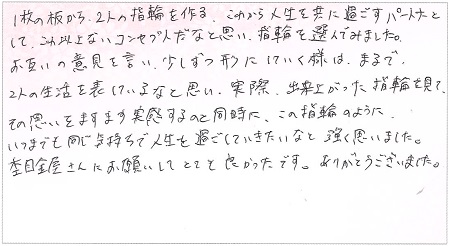 1枚の板から、2人の指輪を作る。これから人生を共に過ごすパートナーと
して、これ以上ないコンセプトだなと思い、指輪を選んでみました。
お互いの意見を言い、少しずつ形にしていく様は、まるで、
2人の生活を表しているなと思い、実際、出来上がった指輪を見て、
その思いをますます実感するのと同時に、この指輪のように、
いつまでも同じ気持ちで人生を過ごしていきたいなと強く思いました。
杢目金屋さんにお願いしてとても良かったです。ありがとうございました。